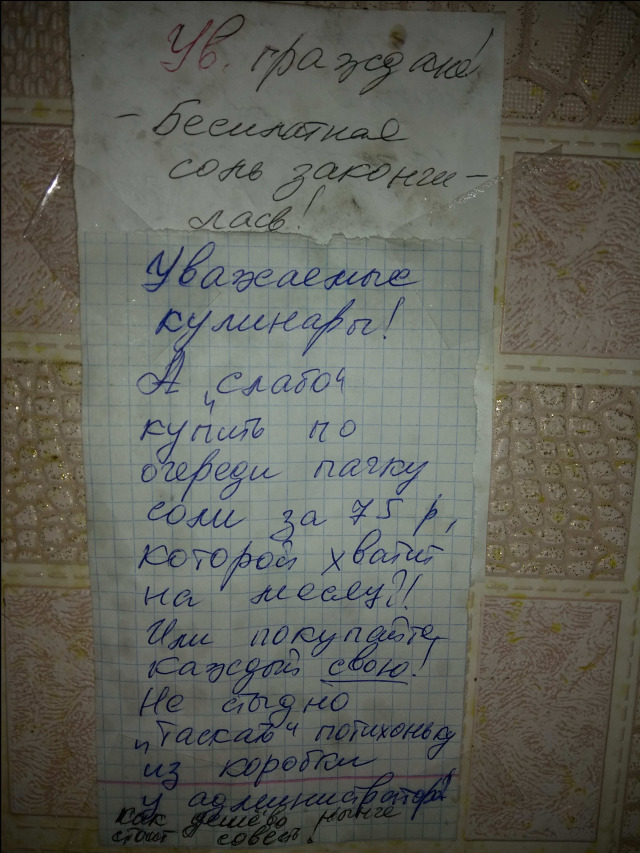 Ув. граждане!
- Бесплатная
соль закончи-
лась!
Уважаемые
кулинары!
А „слабо“
купить по
очереди пачку
соли за 75 р.,
которой хватит
на месяц?!
Или покупайте
каждый свою!
Не стыдно
„таскать“ потихоньку
из коробки
у администратора!
как дешево нынче
стоит совесть!